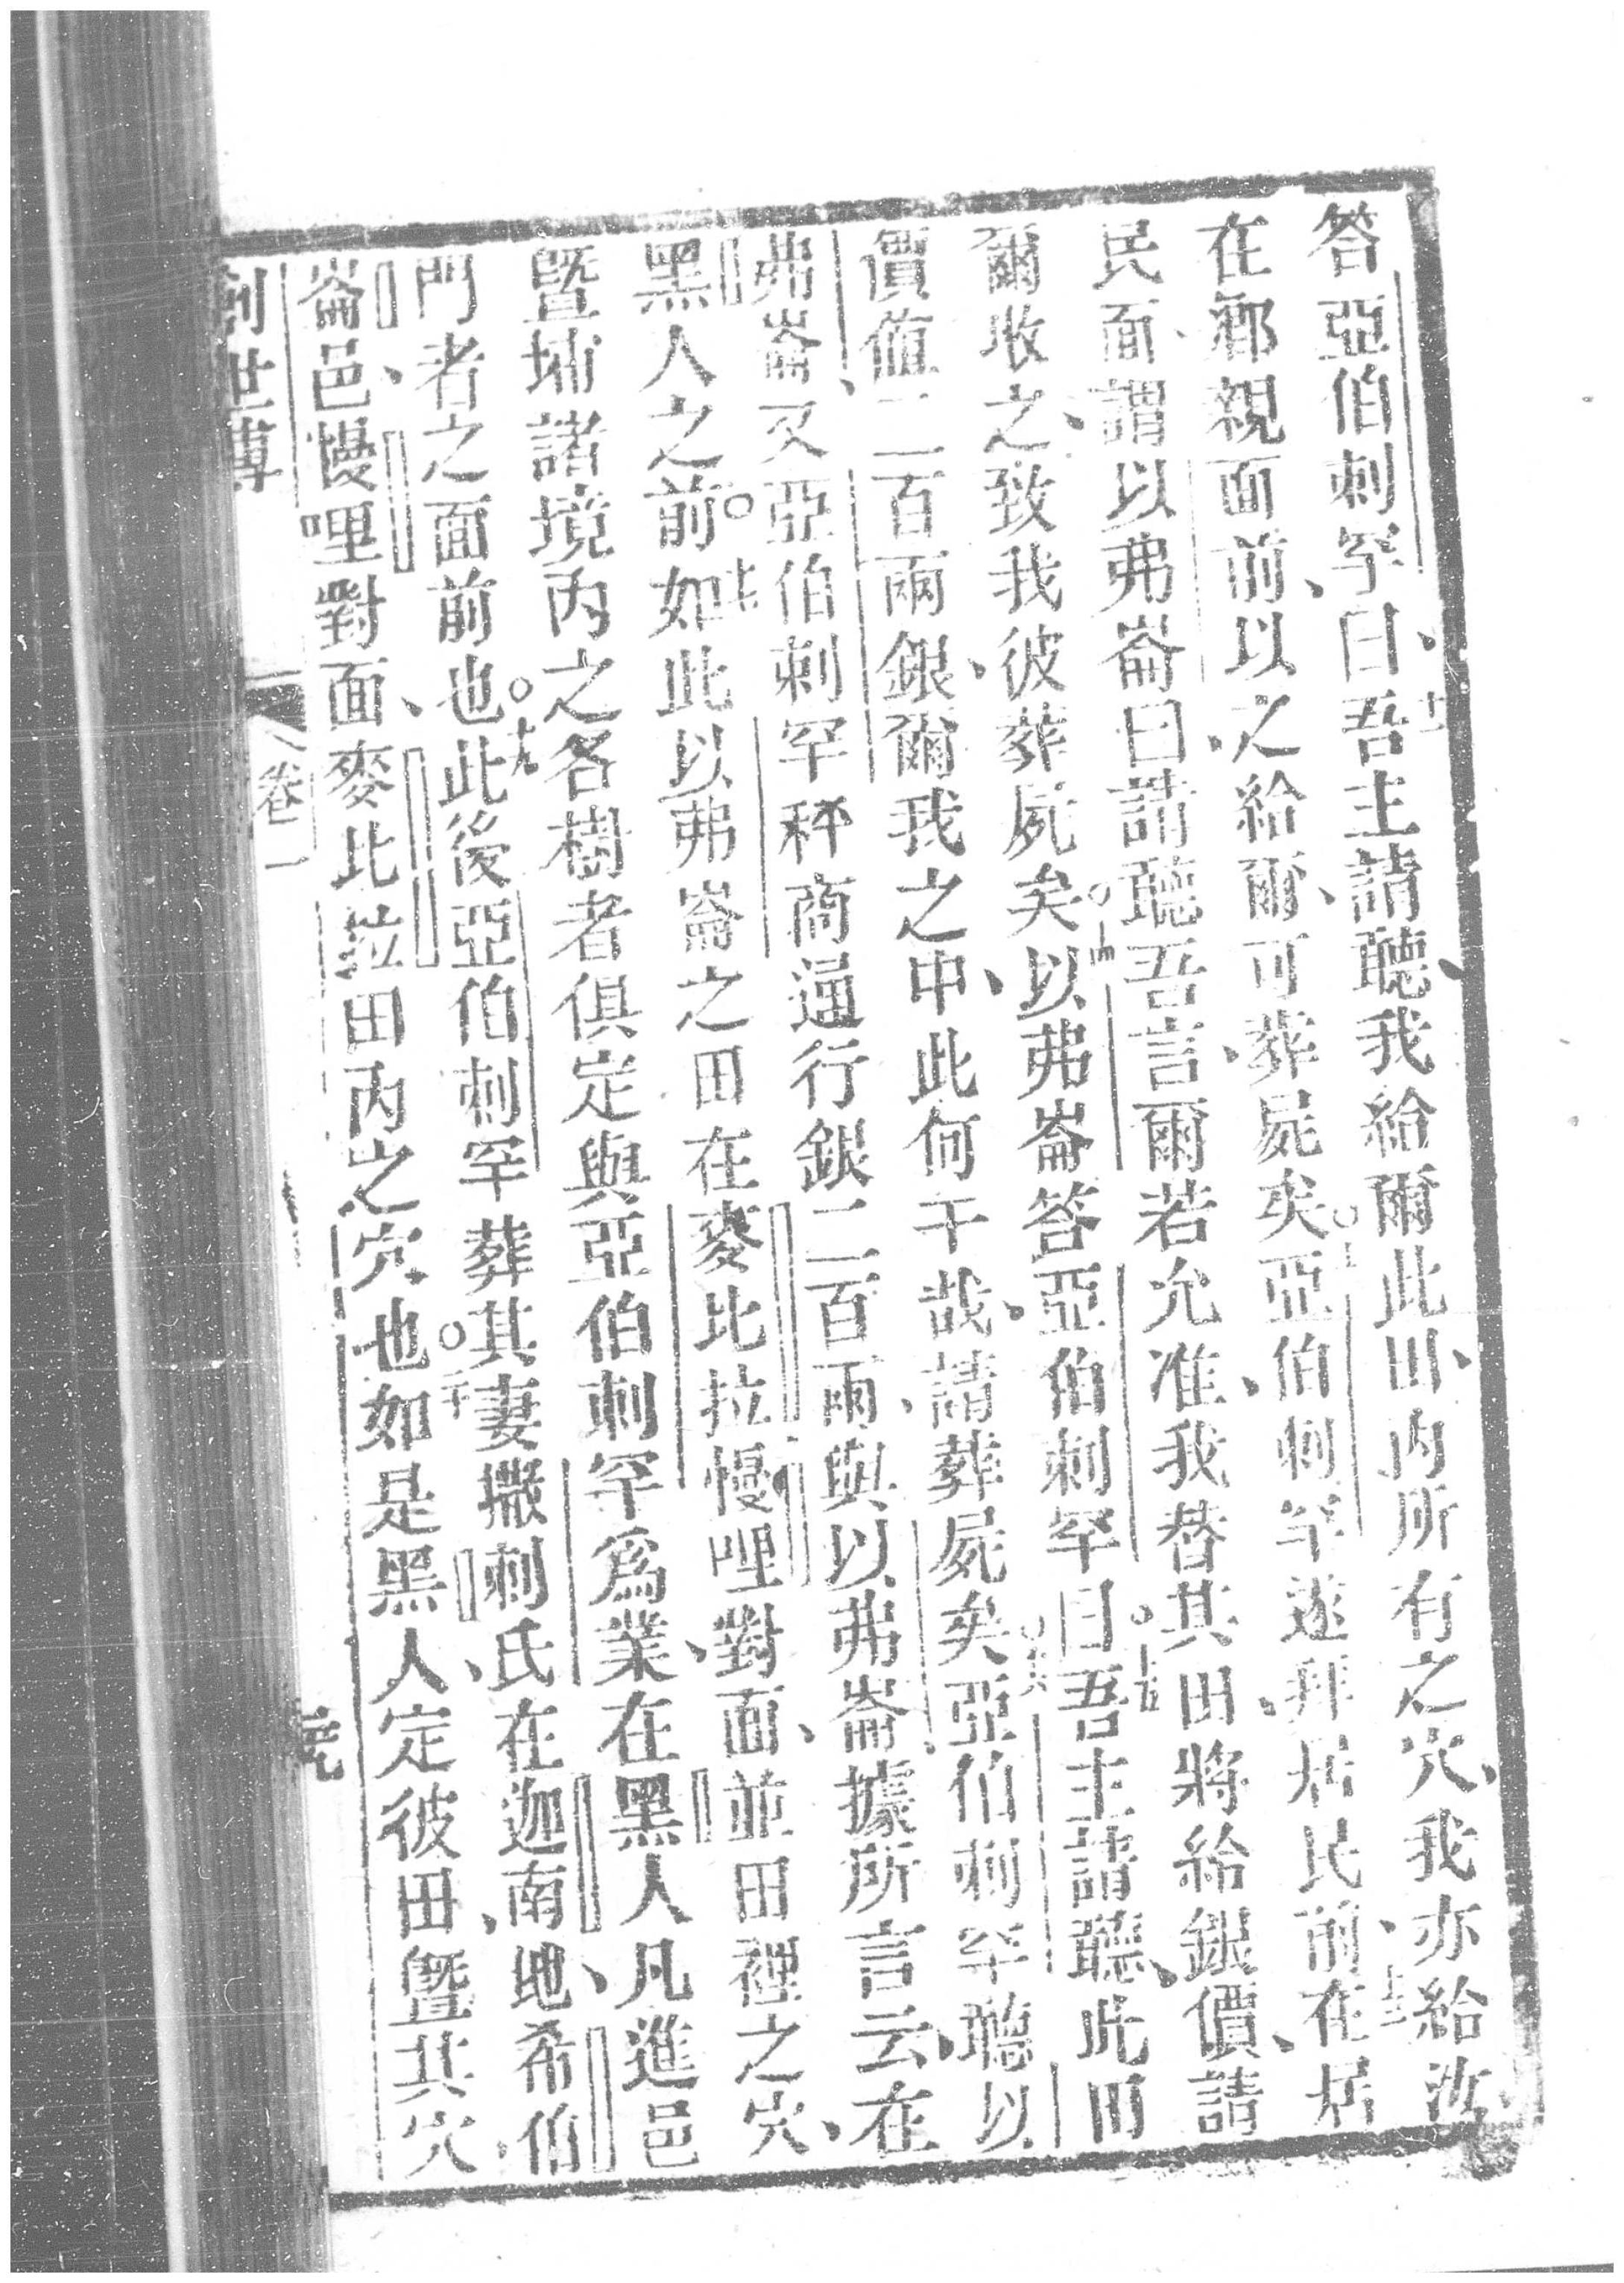 答亞伯剌罕曰、十一吾主請聽、我給爾此田、內所有之穴、我亦給汝
在鄉親面前、以之給爾、可葬屍矣。十二亞伯剌罕遂拜居民前、十三在居
民面、謂以弗崙曰、請聽吾言、爾若允准、我替其田、將給銀價、請
爾收之、致我彼葬屍矣。十四以弗崙答亞伯剌罕曰。十五吾主請聽、此田
價值、二百兩銀、爾我之中、此何干哉、請葬屍矣。十六亞伯剌罕聽以
弗崙、又亞伯剌罕秤商通行銀二百兩、與以弗崙、據所言云、在
黑人之前。十七如此以弗崙之田在麥比拉慢哩對面、並田裡之穴、
暨埔諸境內之各樹者俱定與亞伯剌罕爲業、在黑人凡進邑
門者之面前也。十九此後亞伯剌罕葬其妻撒剌氏在迦南地、希伯
崙邑、慢哩對面、麥比拉田內之穴也。二十如是黑人、定彼田、暨其穴、
創世傳 卷一